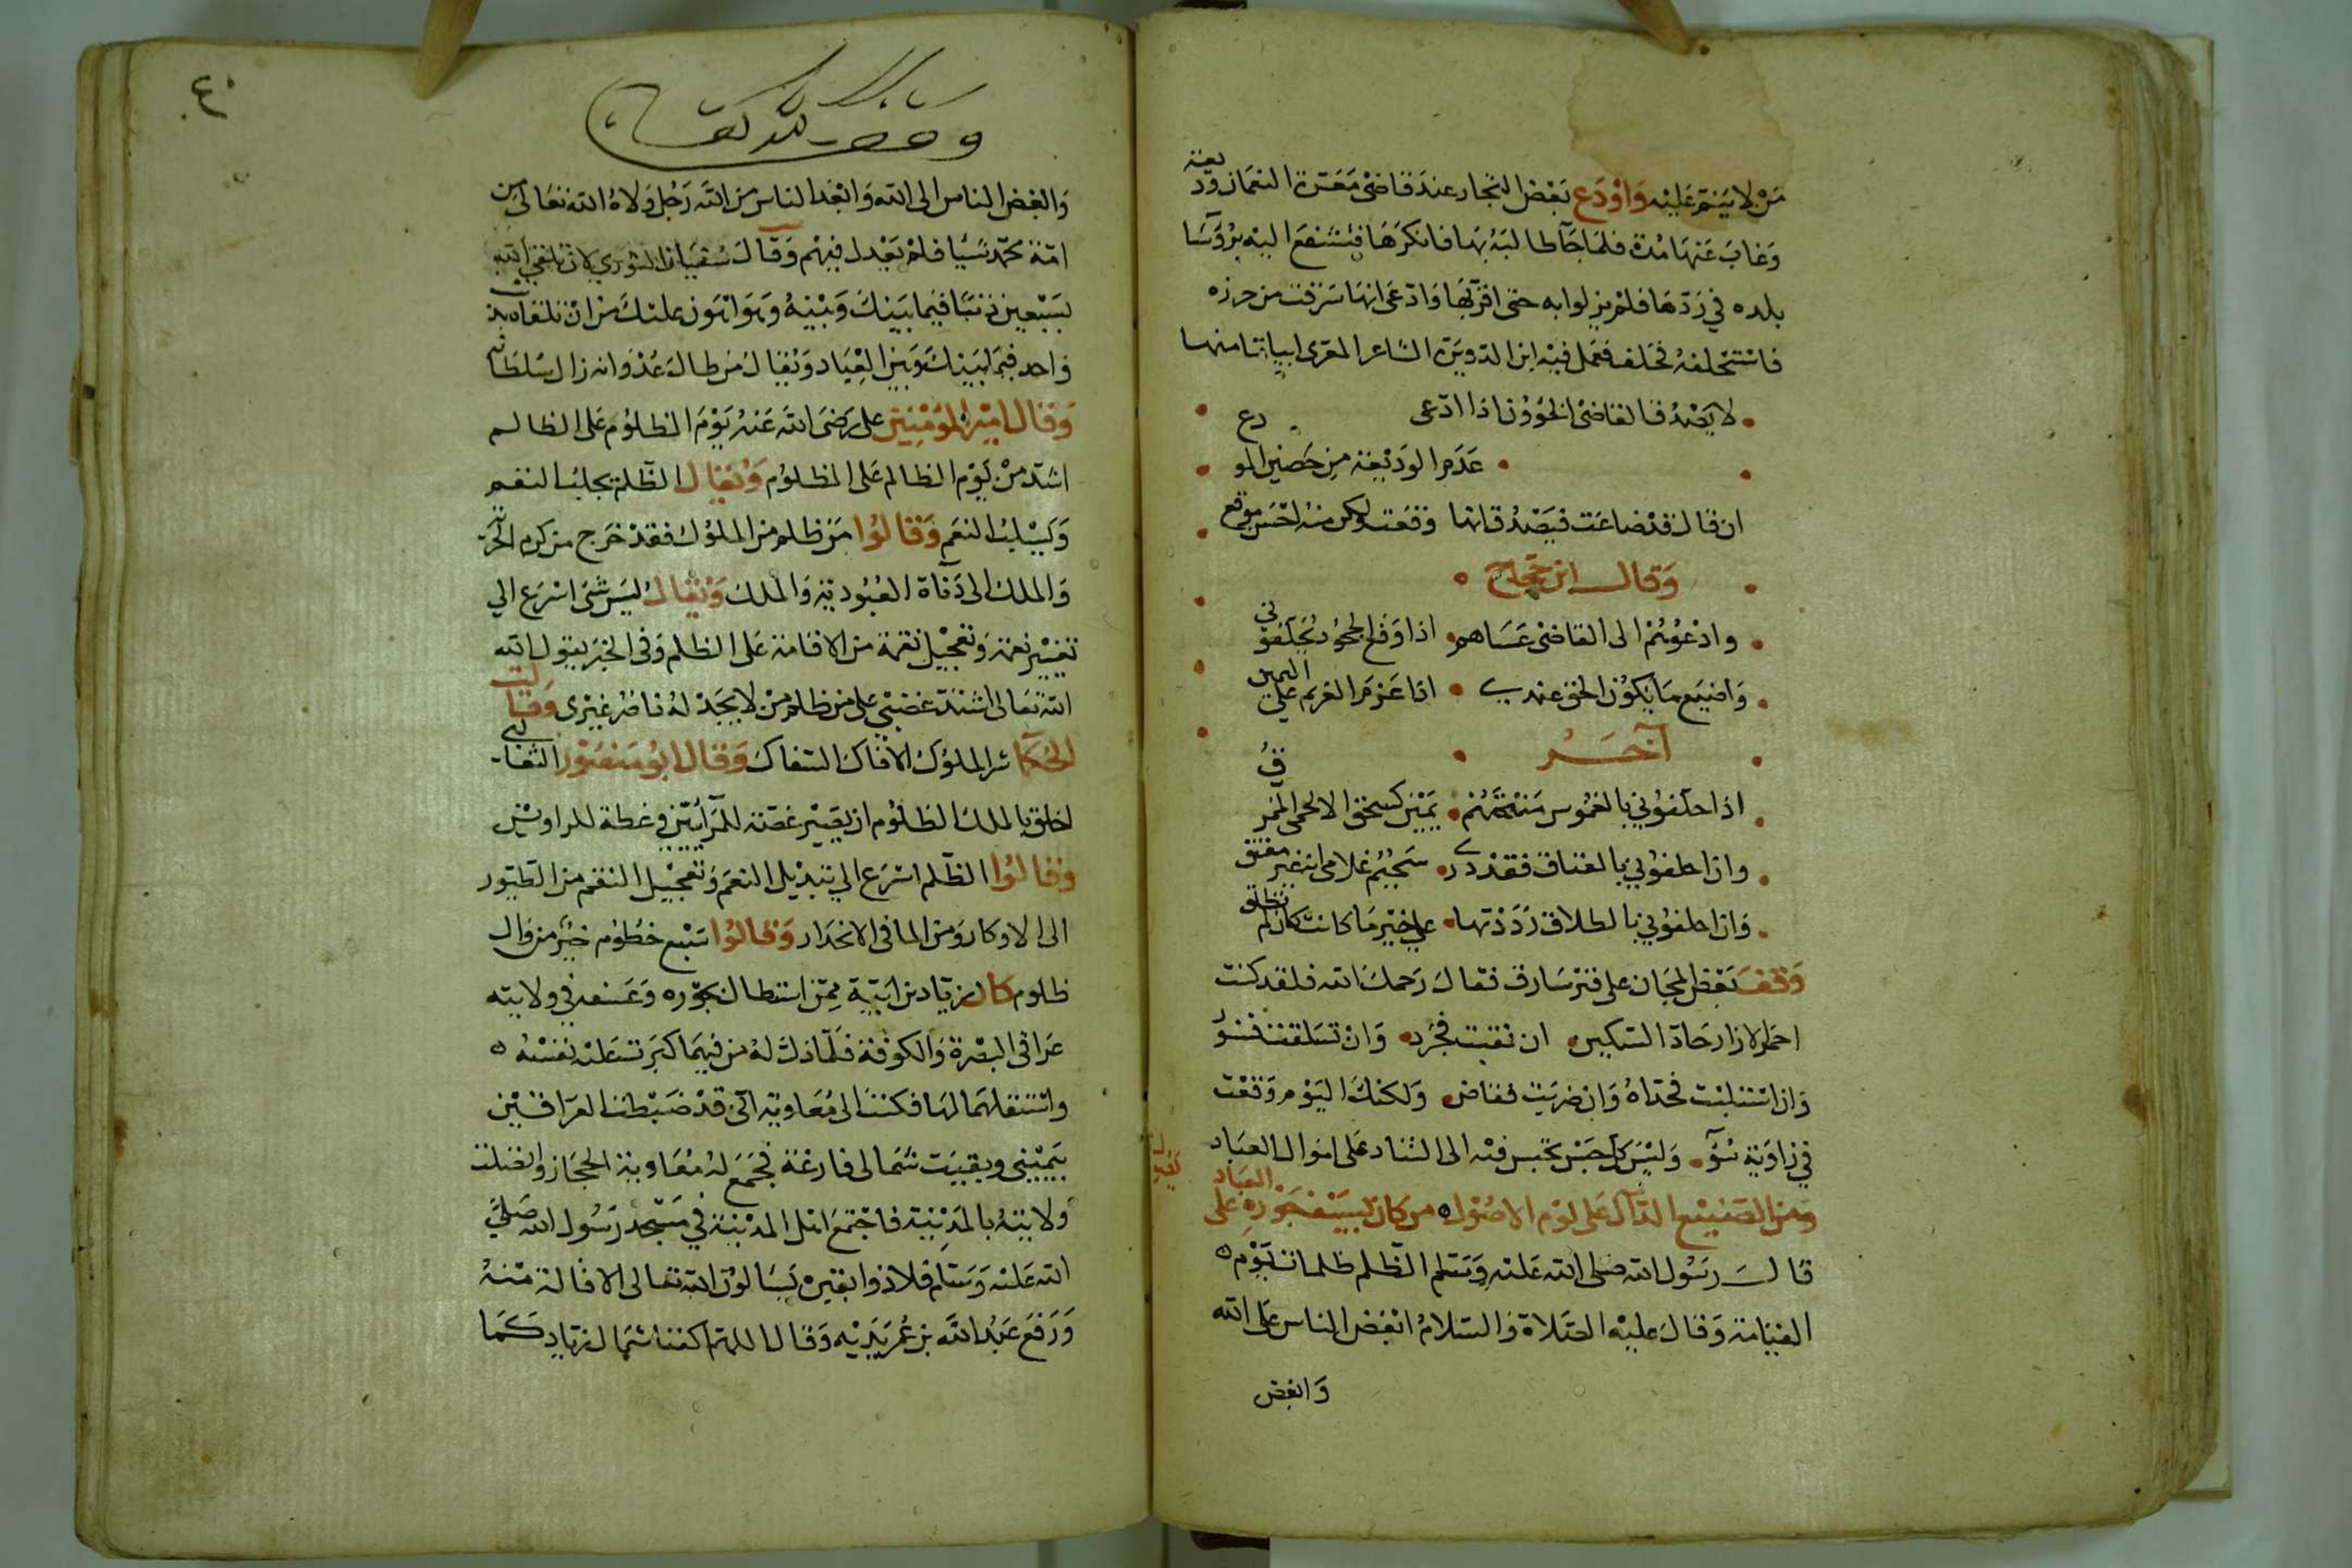 من لا يتم عليه وَاوْدَع بَعْض التجار عندَ قاضى مَعَرة النعمان وديعة
وَغابَ عَنها مُدة فلما جَآ طالبَهُ بها فانكرَهَا فتشفعَ اليْه برُؤسَا
بلده في رَدّهَا فلم يزلوا به حتى اقرّ بهَا وَادّعَى انها سَرقت من حرزه
فاسْتحْلفهُ فحَلف فعَمل فيْه ابن الدويرة الشاعر المعَرى ابياتا منها
لا يَصْدُق القاضىْ الخؤون اذا ادّعى
عَدَمِ الوَديْعَة مِن حَصينِ المودع
ان قالَ قدْ ضاعَت فيَصْدُق انها وَقعَت ولكن منهُ احْسَن موقع
وَقال ابن حَجاج
وادْعُوْهُمْ الى القاضىْ عَسَاهم اذا وَقع الجحُود يُحَلّفوني
وَاضيَع مَا يَكُوْن الحَق عندي اذا عَزم الغريم على اليمين
آخَــر
اذا حلّفوْني بالغمُوس مَنحْتهُمْ يَميْن كسحق الالحمى الممزق
وان احلفوْني بالعتاق فقدْ دَرى سُحَيْم غلامى انه غير معتق
وَان احلفوْني بالطلاق رَدَدْتها على خيْر مَا كانت كان لم تطلق
وَقفَ بَعْض المجان على قبر سَارق فقالَ رَحمكَ الله فلقد كنت
احمر الازار حَادّ السّكين ان نقبت فجُرَد وَانْ تسَلقت فسنوْر
وَان استلبْت فحَداهُ وَان ضرَبتَ فقاض وَلكنكَ اليَوْم وَقعْت
في زاوَية سُوْء وَليْسَ كل حَبْس يحبس فيْه الى التناد على اموال العبَاد
وَمن الصَنيْع الدّال عَلى لؤم الاصُوْل من كان لسَيْف جَوْرهِ على العبَاد
قالَ رَسُول الله صَلى الله عَليْه وَسَلم الظّلم ظلمات يَوْم
القيَامَة وَقالَ عليْه الصَّلاة وَالسّلامُ ابْغض الناس على الله
وَابغض
٤٠
وقف لله تعالى
وَابْغض الناس الى الله وَابْعَد الناس من الله رَجُل وَلاهُ الله تعَالى من
امّة محمّد شيْا فلم يَعْدل فيهْم وَقَالَ سُفيَان الثوري لان تلقى الله
بسَبْعين ذنبًا فيمَا بَينكَ وَبْنيهُ وَهَوَ اهْوَن علْيكَ مْن انْ تلقاه بذنب
وَاحد فيمَا بَيْنكَ وَبَيْن العِبَاد وَيُقال مَن طالَ عُدْوانه زال سُلطانه
وَقال اميْر المؤمنين على رَضيَ الله عَنهُ يَوْمَ المظلوْم على الظالم
اشَد مْن يَوْم الظالم عَلى المظلوم وَيُقال الظّلم يجلبُ النقم
وَيَسْلبُ النعَم وَقالوْا مَن ظلم من الملوْك فقدْ خَرج من كرم الحرية
وَالملك الى دَنآة العُبُوديّة وَالملكَ وَيُقالُ ليْسَ شئ اسْرَع الي
تغيْير نعمة وَتعجْيل نقمة من الاقامة عَلى الظلم وَفى الخبَر يقول الله
الله تعَالى اشتدّ غضبْي على من ظلم مَنْ لا يَجدْ لهُ ناصُر غيْرى وَقالت
الحُكمآ شر الملوْك الافاك السّفاك وَقال ابُوْ مَنصُوْر الثعالبى
اخلق بالملك الظلوْم ان يَصيْر غصّة للمرآئين وعظة للراوين
وَقالوُا الظّلم اسْرَع الي تبديْل النعَم وَتعجيْل النقم من الطيوُر
الى الاوكار وَمن الما فى الانحدَار وَقالوُا سَبع خطوم خيْر من وال
ظلوم كان زيَاد بن ابَيْه ممّن اسْتطال بجوْره وَعَسفه في ولايته
عَراقى البصْرة وَالكوفة فلمّا ذلّ لهُ من فيهمَا كبرت عَليْه نفسُهُ
وَاسْتقلهمَا لهَا فكتبَ الى مُعَاويَة انّى قدْ ضبَطت العرَاقيْن
بيَميْني وبقيَت شمَالى فارغة فجَمَع لهُ مُعَاويَة الحجَاز واتصَلت
وَلايتهُ بالمَدِيْنة فاجْتمعَ اهْل المدينة في مَسْجد رَسُول الله صَلى
الله عَليْه وَسَلم فلاذوا بقبره يَسَالوْن الله تعَالى الاقالة منهُ
وَرَفعَ عَبْدُ الله بن عُمَر يَديْه وَقالَ اللهمّ اكفنا شمَال زيَاد كَمَا